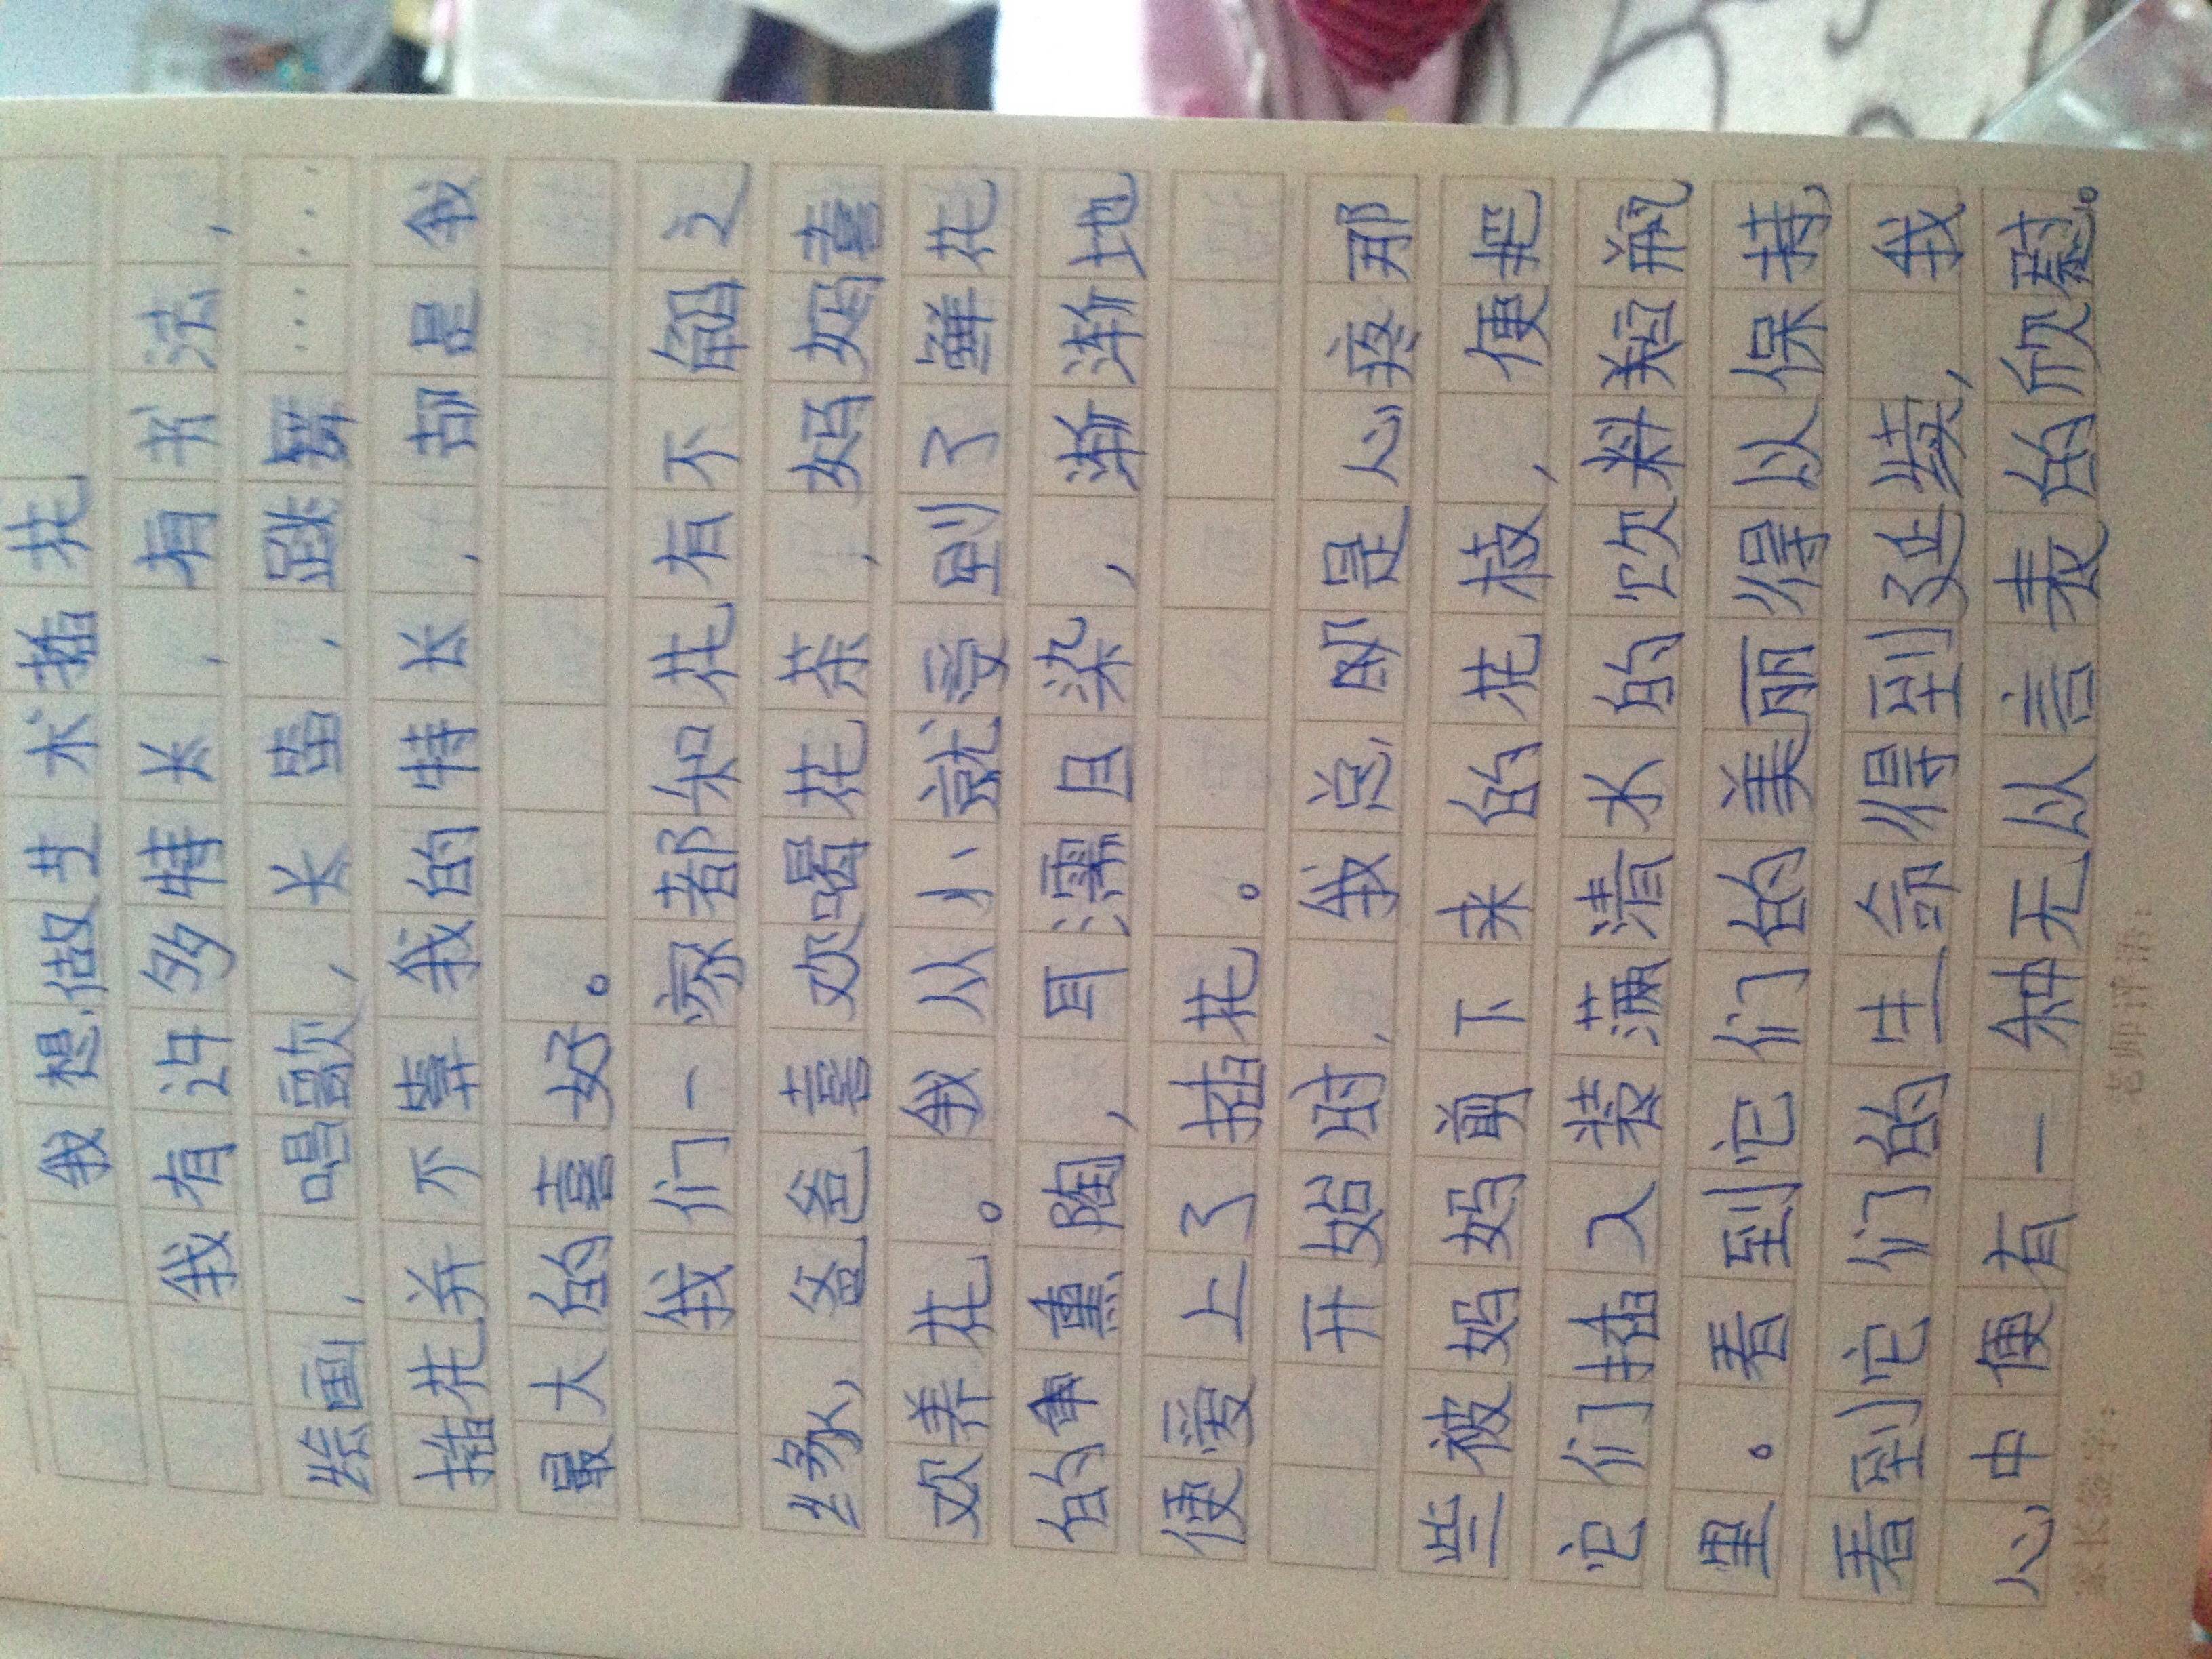 我想做艺术插花
我有许多特长，有书法，
绘画，唱歌，长笛，跳舞……，
插花并不算我的特长，却是我
最大的喜好。
我们一家都和花有不解之
缘，爸爸喜欢喝花茶，妈妈喜
欢养花。我从小就受到了鲜花
的熏陶，耳濡目染，渐渐地
便爱上了插花。
开始时，我总即是心疼那
些被妈妈剪下来的花枝，便把
它们插入装满清水的饮料短瓶
里。看到它们的美丽得以保持，
看到它们的生命得到延续，我
心中便有一种无以言表的欣慰。
家长签字：
老师评语：